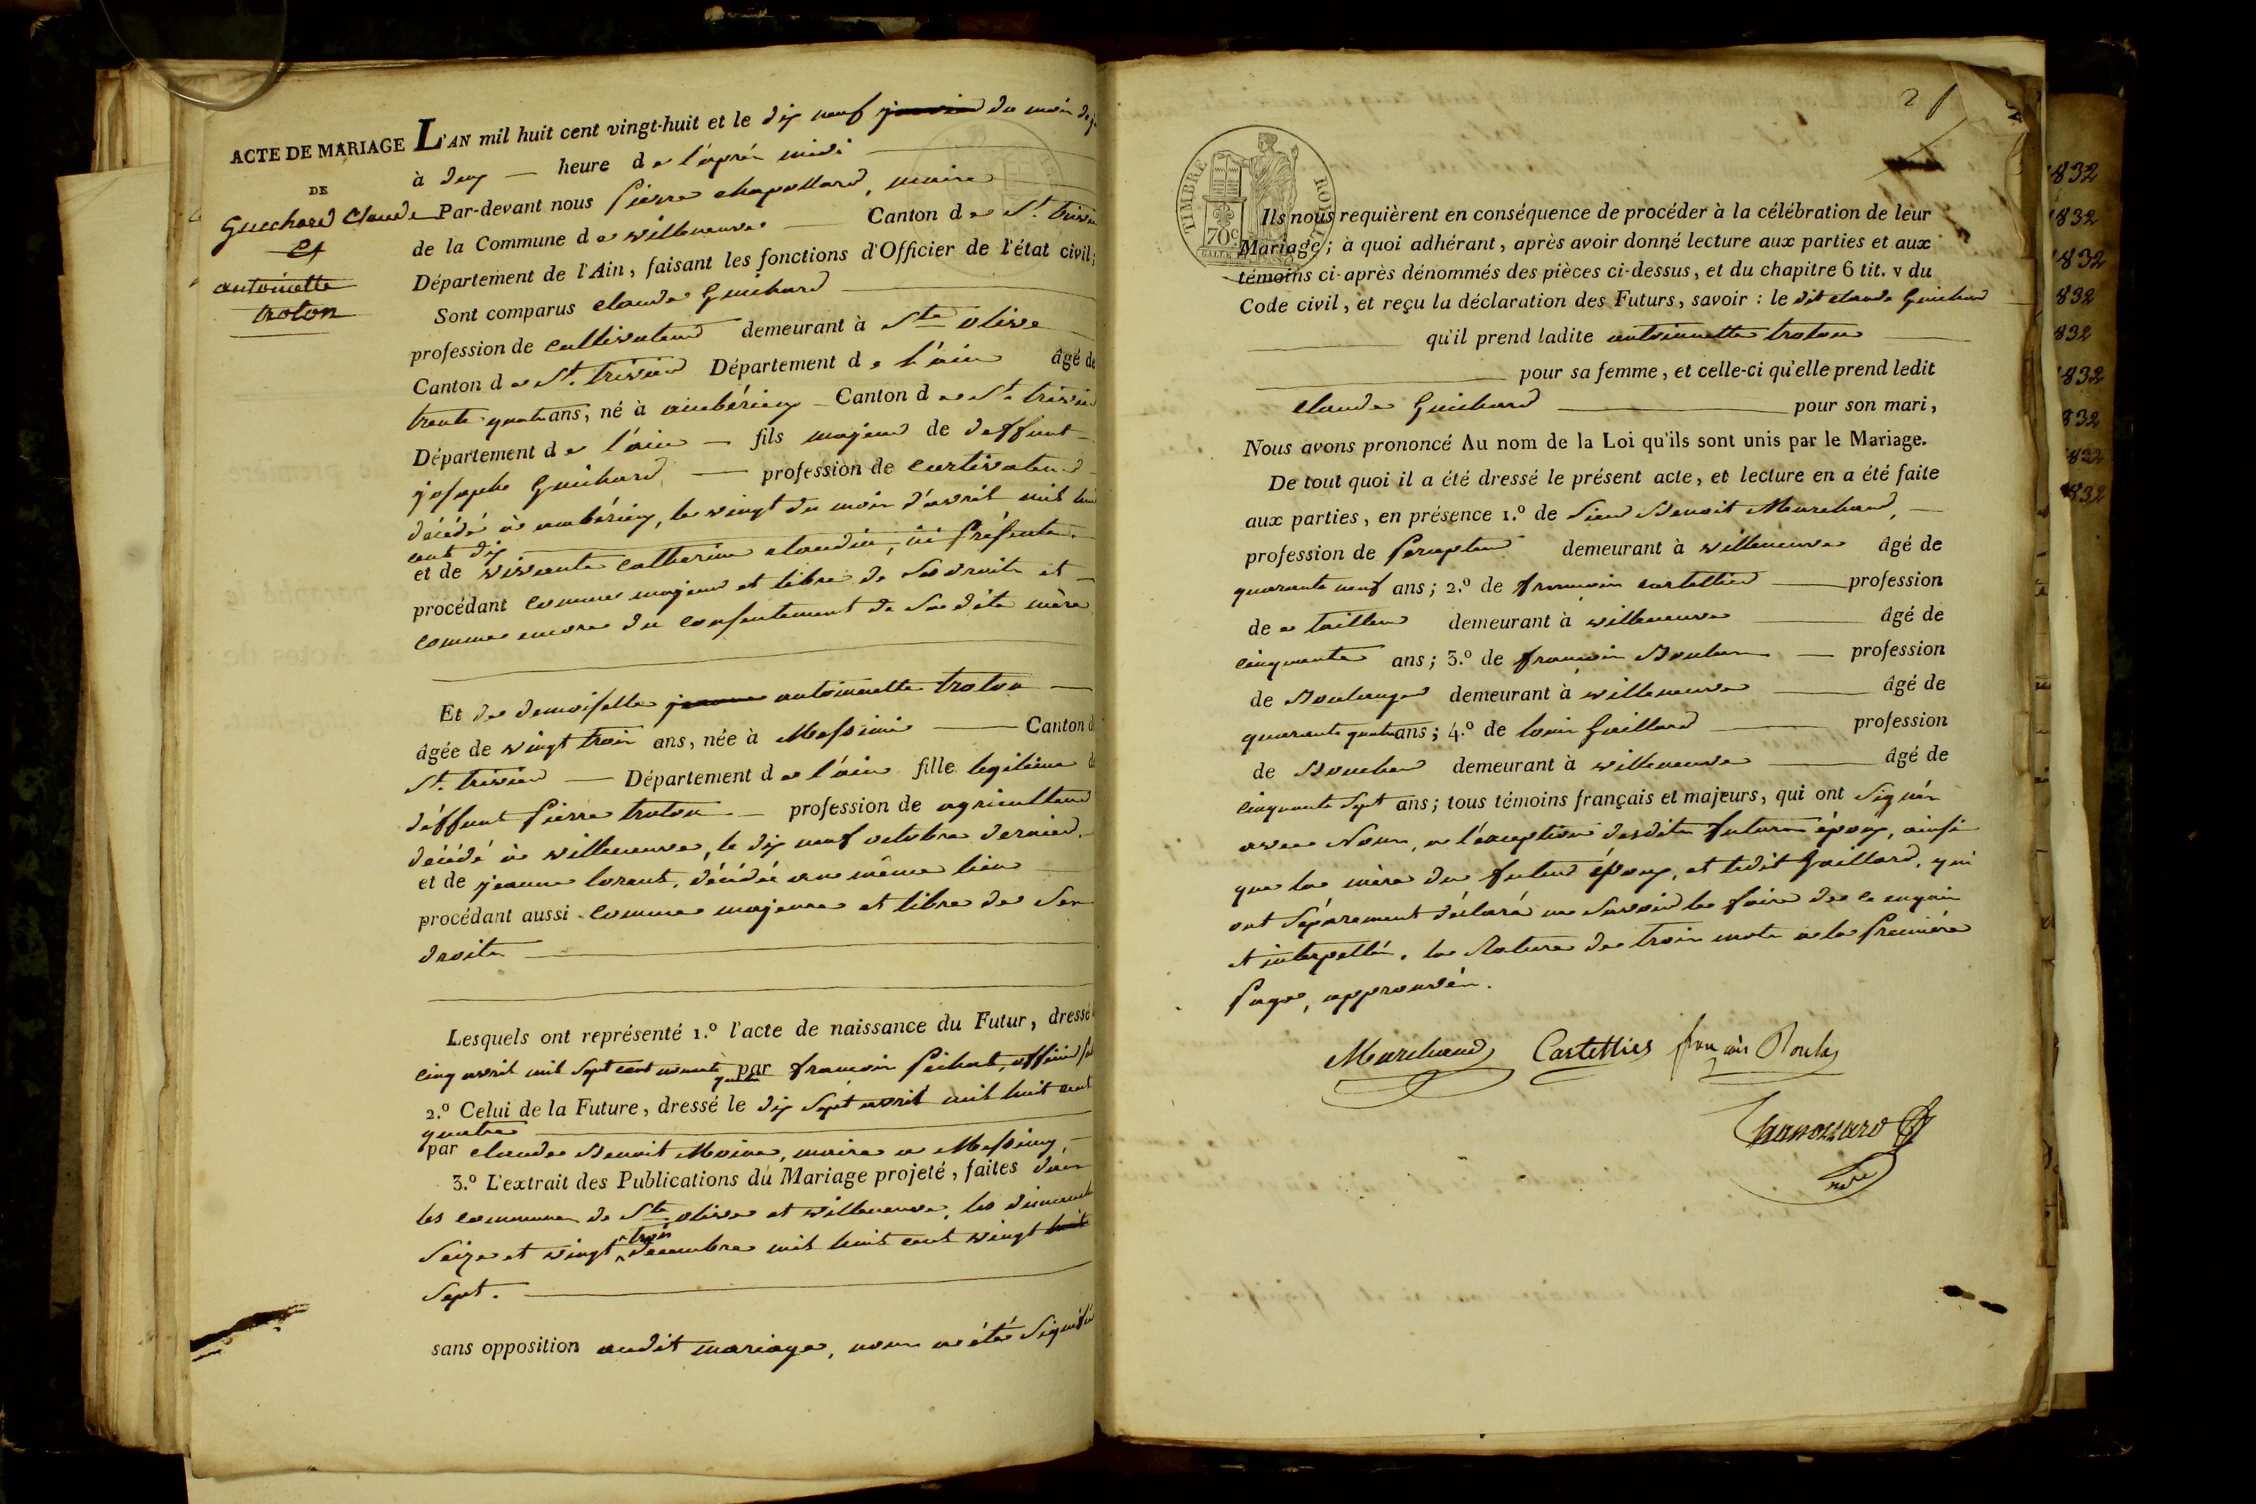 ACTE DE MARIAGE
DE
Guichard Claude
Et
antoinette
troton
L'AN mil huit cent vingt-huit et le dix neuf janvier du mois de
à deux heure de l'après midi
Par-devant nous Pierre chapollard, maire
de la Commune de villeneuve Canton de St. trivier
Département de l'Ain, faisant les fonctions d'Officier de l'état civil;
Sont comparus claude Guichard
profession de cultivateur demeurant à Ste olive
Canton de St. trivier Département de l'ain âgé de
trente quatre ans, né à ambérieux Canton de St. trivier
Département de l'ain fils majeur de deffunt
josephe Guichard profession de cultivateur
décédé à ambérieux, le vingt du mois d'avril mil huit
cent dix
et de vivante catherine claudin, ici présente.
procédant comme majeur et libre de ses droits et
comme encore du consentement de sa dite mère
Et de demoiselle jeanne antoinette troton
âgée de vingt trois ans, née à Messimi Canton de
St. trivier Département de l'ain fille legitime de
déffunt Pierre troton profession de agriculteur
décédé à villeneuve, le dix neuf octobre dernier.
et de jeanne lorent, décédée au même lieu
procédant aussi comme majeure et libre de ses
droits
Lesquels ont représenté 1.º l'acte de naissance du Futur, dressé
cinq avril mil sept cent nonante quatre par francois Peichat, officier
2.º Celui de la Future, dressé le dix sept avril mil huit cent
quatre
par claude Benoit Moine, maire a Messimy,
3.º L'extrait des Publications du Mariage projeté, faites dans
les communes de Ste olive et villeneuve, les dimanche
seize et vingt trois décembre mil huit cent vingt huit
sept.
sans opposition audit mariage, nous a été signifié
2
TIMBRE ROYAL
70c
Ils nous requièrent en conséquence de procéder à la célébration de leur
Mariage; à quoi adhérant, après avoir donné lecture aux parties et aux
témoins ci-après dénommés des pièces ci-dessus, et du chapitre 6 tit. v du
Code civil, et reçu la déclaration des Futurs, savoir : le dit claude Guichard
qu'il prend ladite antoinette troton
pour sa femme, et celle-ci qu'elle prend ledit
claude Guichard pour son mari,
Nous avons prononcé Au nom de la Loi qu'ils sont unis par le Mariage.
De tout quoi il a été dressé le présent acte, et lecture en a été faite
aux parties, en présence 1.º de sieur Benoit Marchand,
profession de Percepteur demeurant à villeneuve âgé de
quarante neuf ans; 2.º de francois cartellier profession
de tailleur demeurant à villeneuve âgé de
cinquante ans; 3.º de francois Boulas profession
de Boulanger demeurant à villeneuve âgé de
quarante quatre ans; 4.º de louis Gaillard profession
de Boucher demeurant à villeneuve âgé de
cinquante sept ans; tous témoins français et majeurs, qui ont signés
avec Nous, a l'éxception desdits futurs époux, ainsi
que la mère du futur époux, et ledit Gaillard, qui
ont séparement déclaré ne savoir le faire de ce enquis
et interpellés. la Rature de trois mots a la première
page, approuvés.
Marchand Cartellier françois Boulas
1832
1832
1832
832
832
1832
832
1832
1832